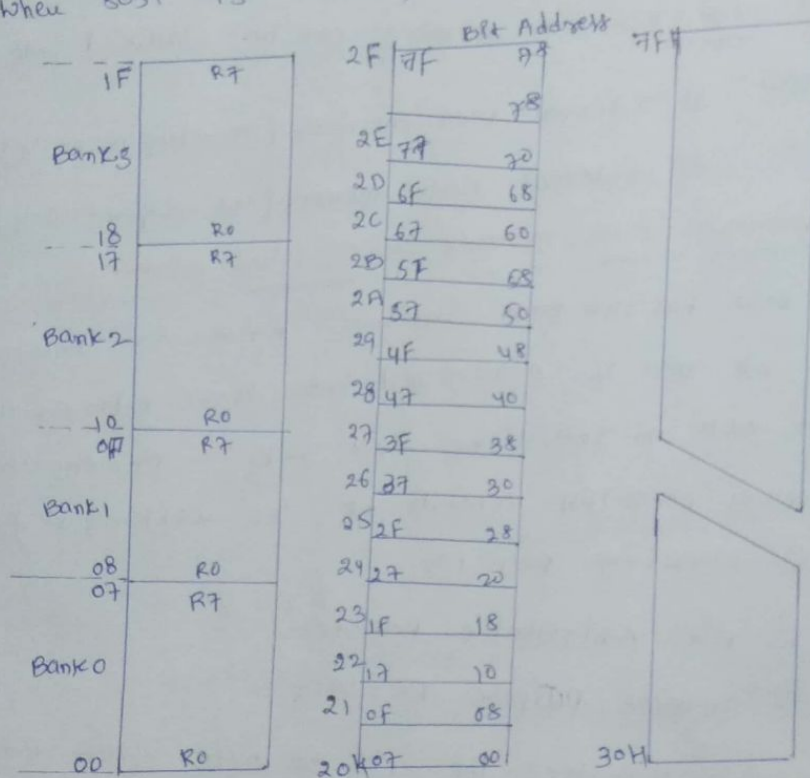 when 8051 is
Bit Address
1F R7
Bank3
18 R0
17 R7
Bank2
10 R0
0F R7
Bank1
08 R0
07 R7
Bank0
00 R0
2F 7F 78
78
2E 77 70
2D 6F 68
2C 67 60
2B 5F 68
2A 57 50
29 4F 48
28 47 40
27 3F 38
26 37 30
25 2F 28
24 27 20
23 1F 18
22 17 10
21 0F 08
20H 07 00
7FH
30H